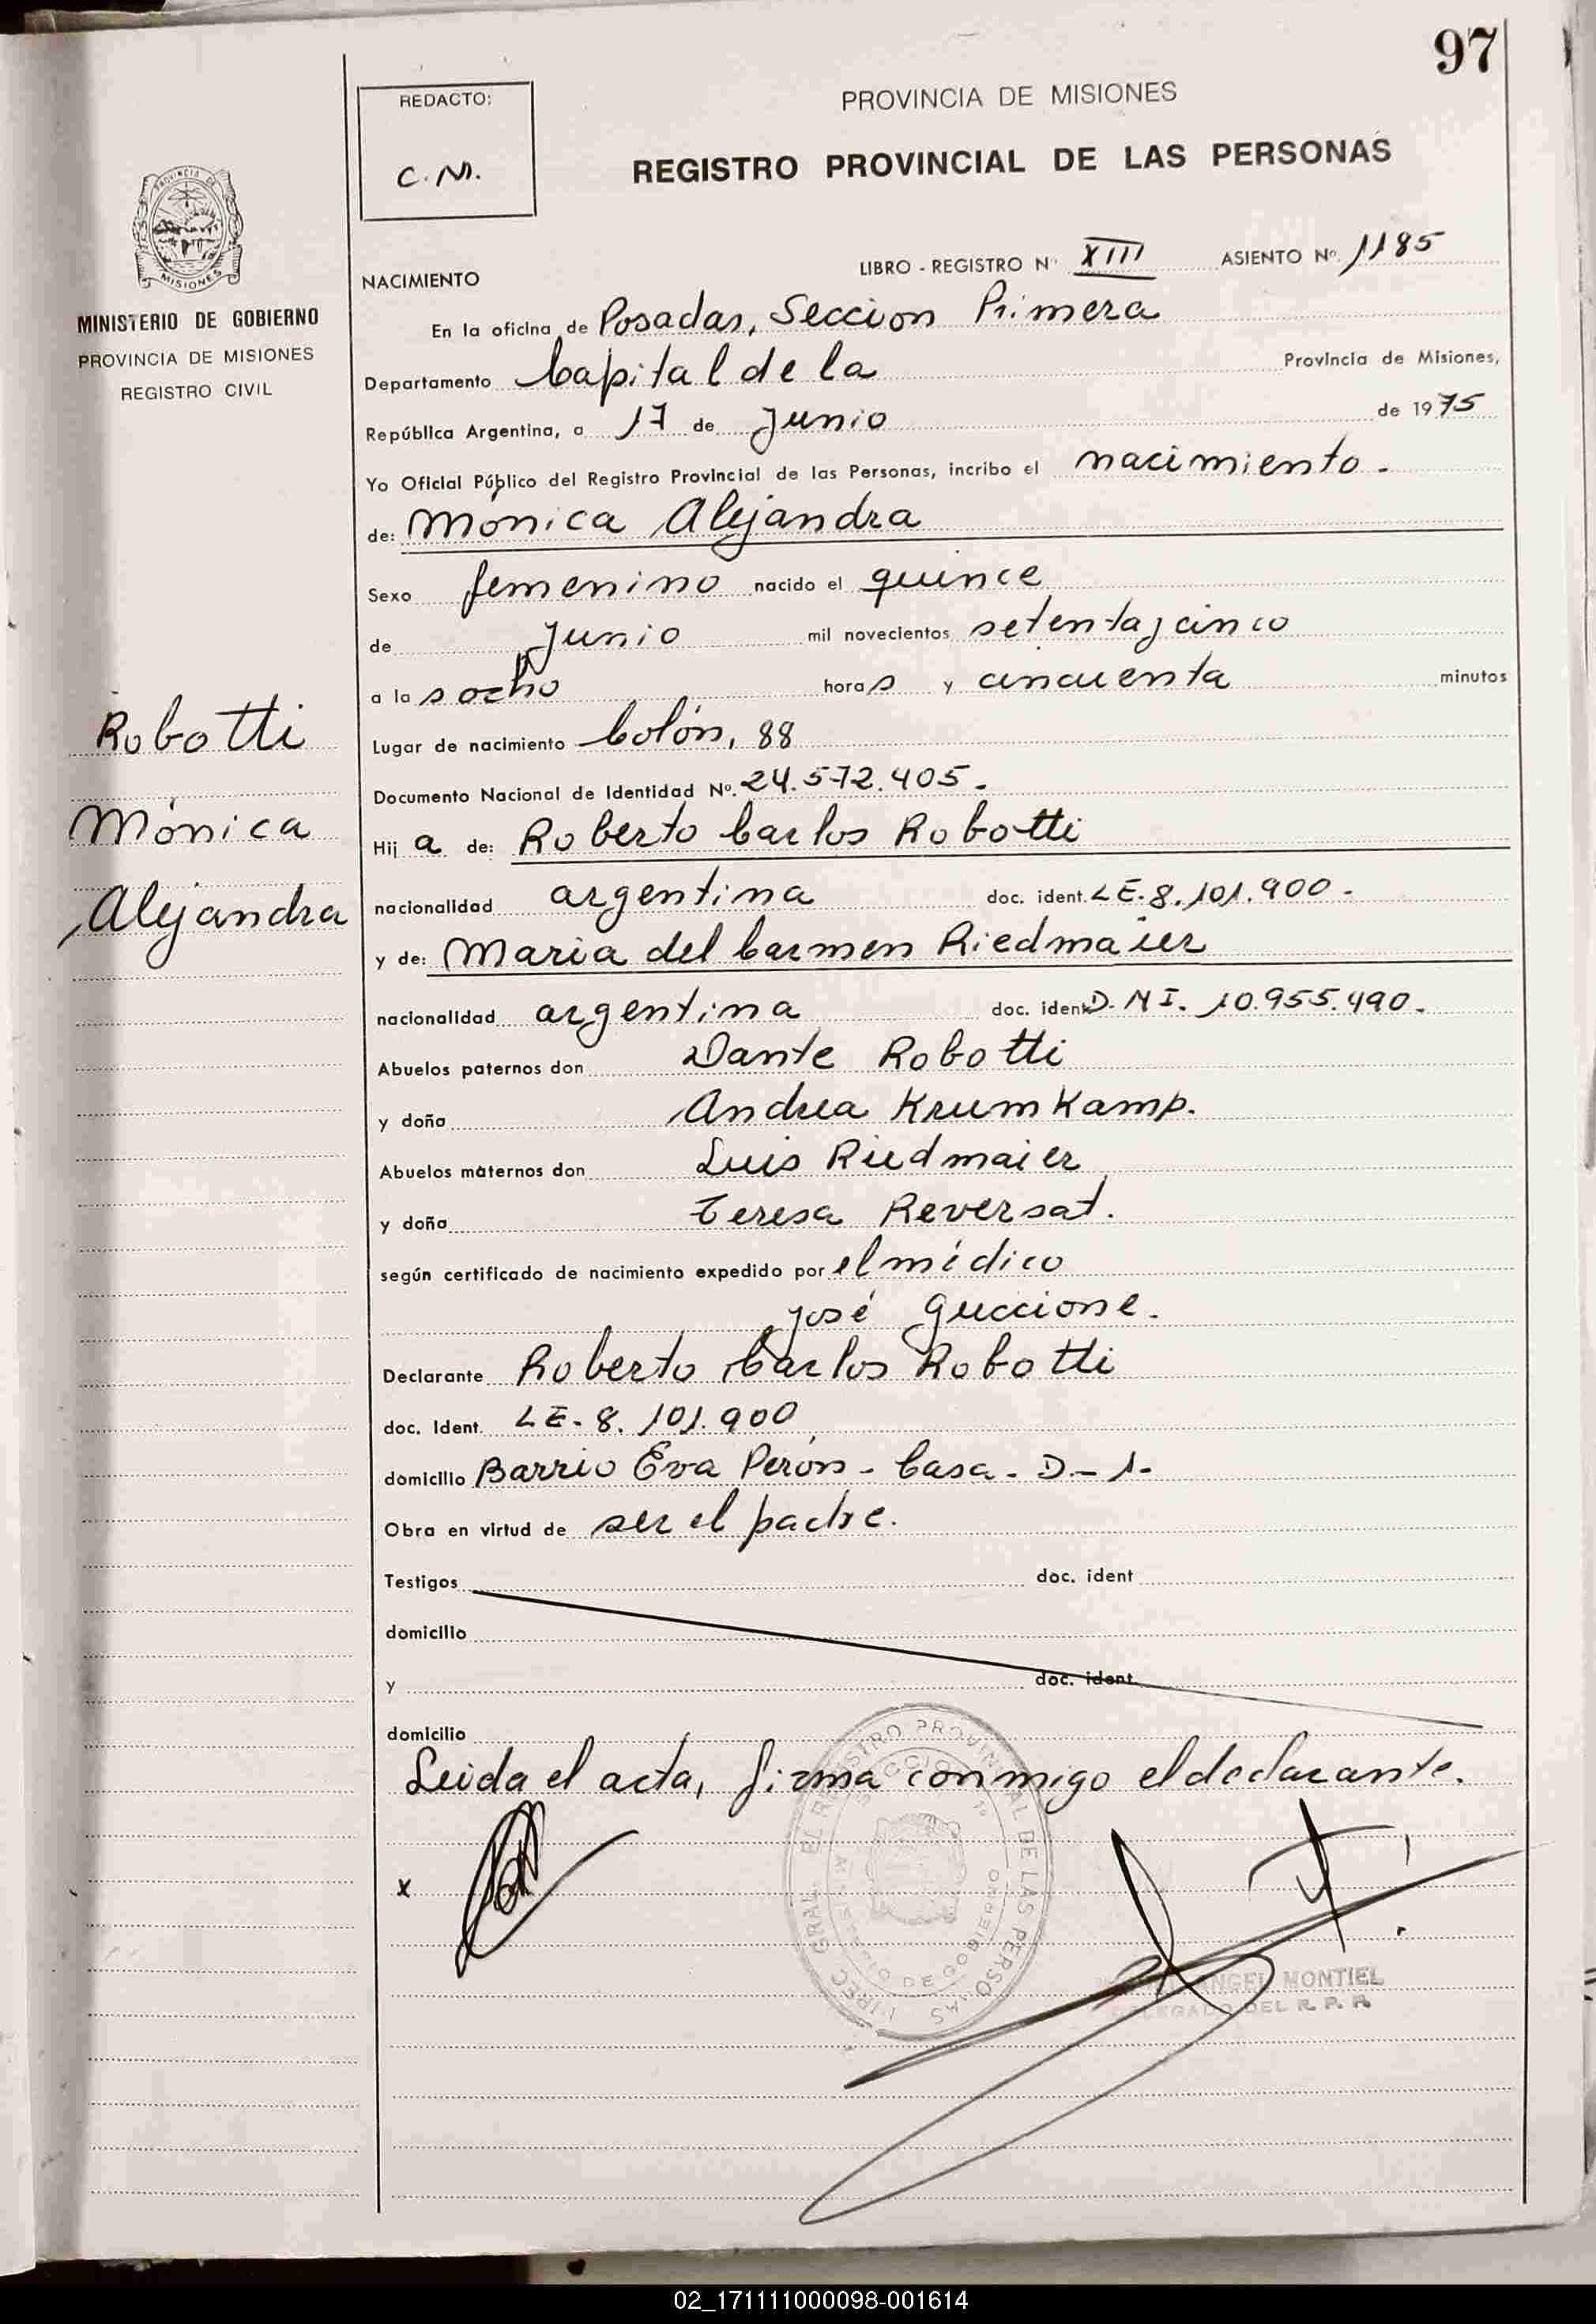 97
REDACTO:
C.M.
PROVINCIA DE MISIONES
REGISTRO PROVINCIAL DE LAS PERSONAS
PROVINCIA DE
MISIONES
MINISTERIO DE GOBIERNO
PROVINCIA DE MISIONES
REGISTRO CIVIL
NACIMIENTO
LIBRO - REGISTRO N° XIII ASIENTO Nº. 1185
En la oficina de Posadas, Seccion Primera
Departamento Capital de la Provincia de Misiones,
República Argentina, a 17 de Junio de 1975
Yo Oficial Público del Registro Provincial de las Personas, incribo el nacimiento.-
de: Mónica Alejandra
Sexo femenino nacido el quince
de Junio mil novecientos setenta y cinco
a las ocho horas y cincuenta minutos
Lugar de nacimiento Colón, 88
Documento Nacional de Identidad Nº. 24.572.405.-
Hija de: Roberto Carlos Robotti
nacionalidad argentina doc. ident. LE-8.101.900.-
y de: Maria del Carmen Riedmaier
nacionalidad argentina doc. ident D.N I. 10.955.490.-
Abuelos paternos don Dante Robotti
y doña Andrea Krumkamp.
Abuelos maternos don Luis Riedmaier
y doña Teresa Reversat.
según certificado de nacimiento expedido por el médico
José Guccione.
Declarante Roberto Carlos Robotti
doc. Ident. LE-8.101.900
domicilio Barrio Eva Perón - Casa - D - 1-
Obra en virtud de ser el padre.
Testigos doc. ident
domicilio
y doc. ident
domicilio
Leida el acta, firma conmigo el declarante.
x
Robotti
Mónica
Alejandra
EL REGISTRO PROVINCIAL DE LAS PERSONAS
SECCION 1º
MINISTERIO DE GOBIERNO
ANGEL MONTIEL
DELEGADO DEL R. P. P.
02_171111000098-001614